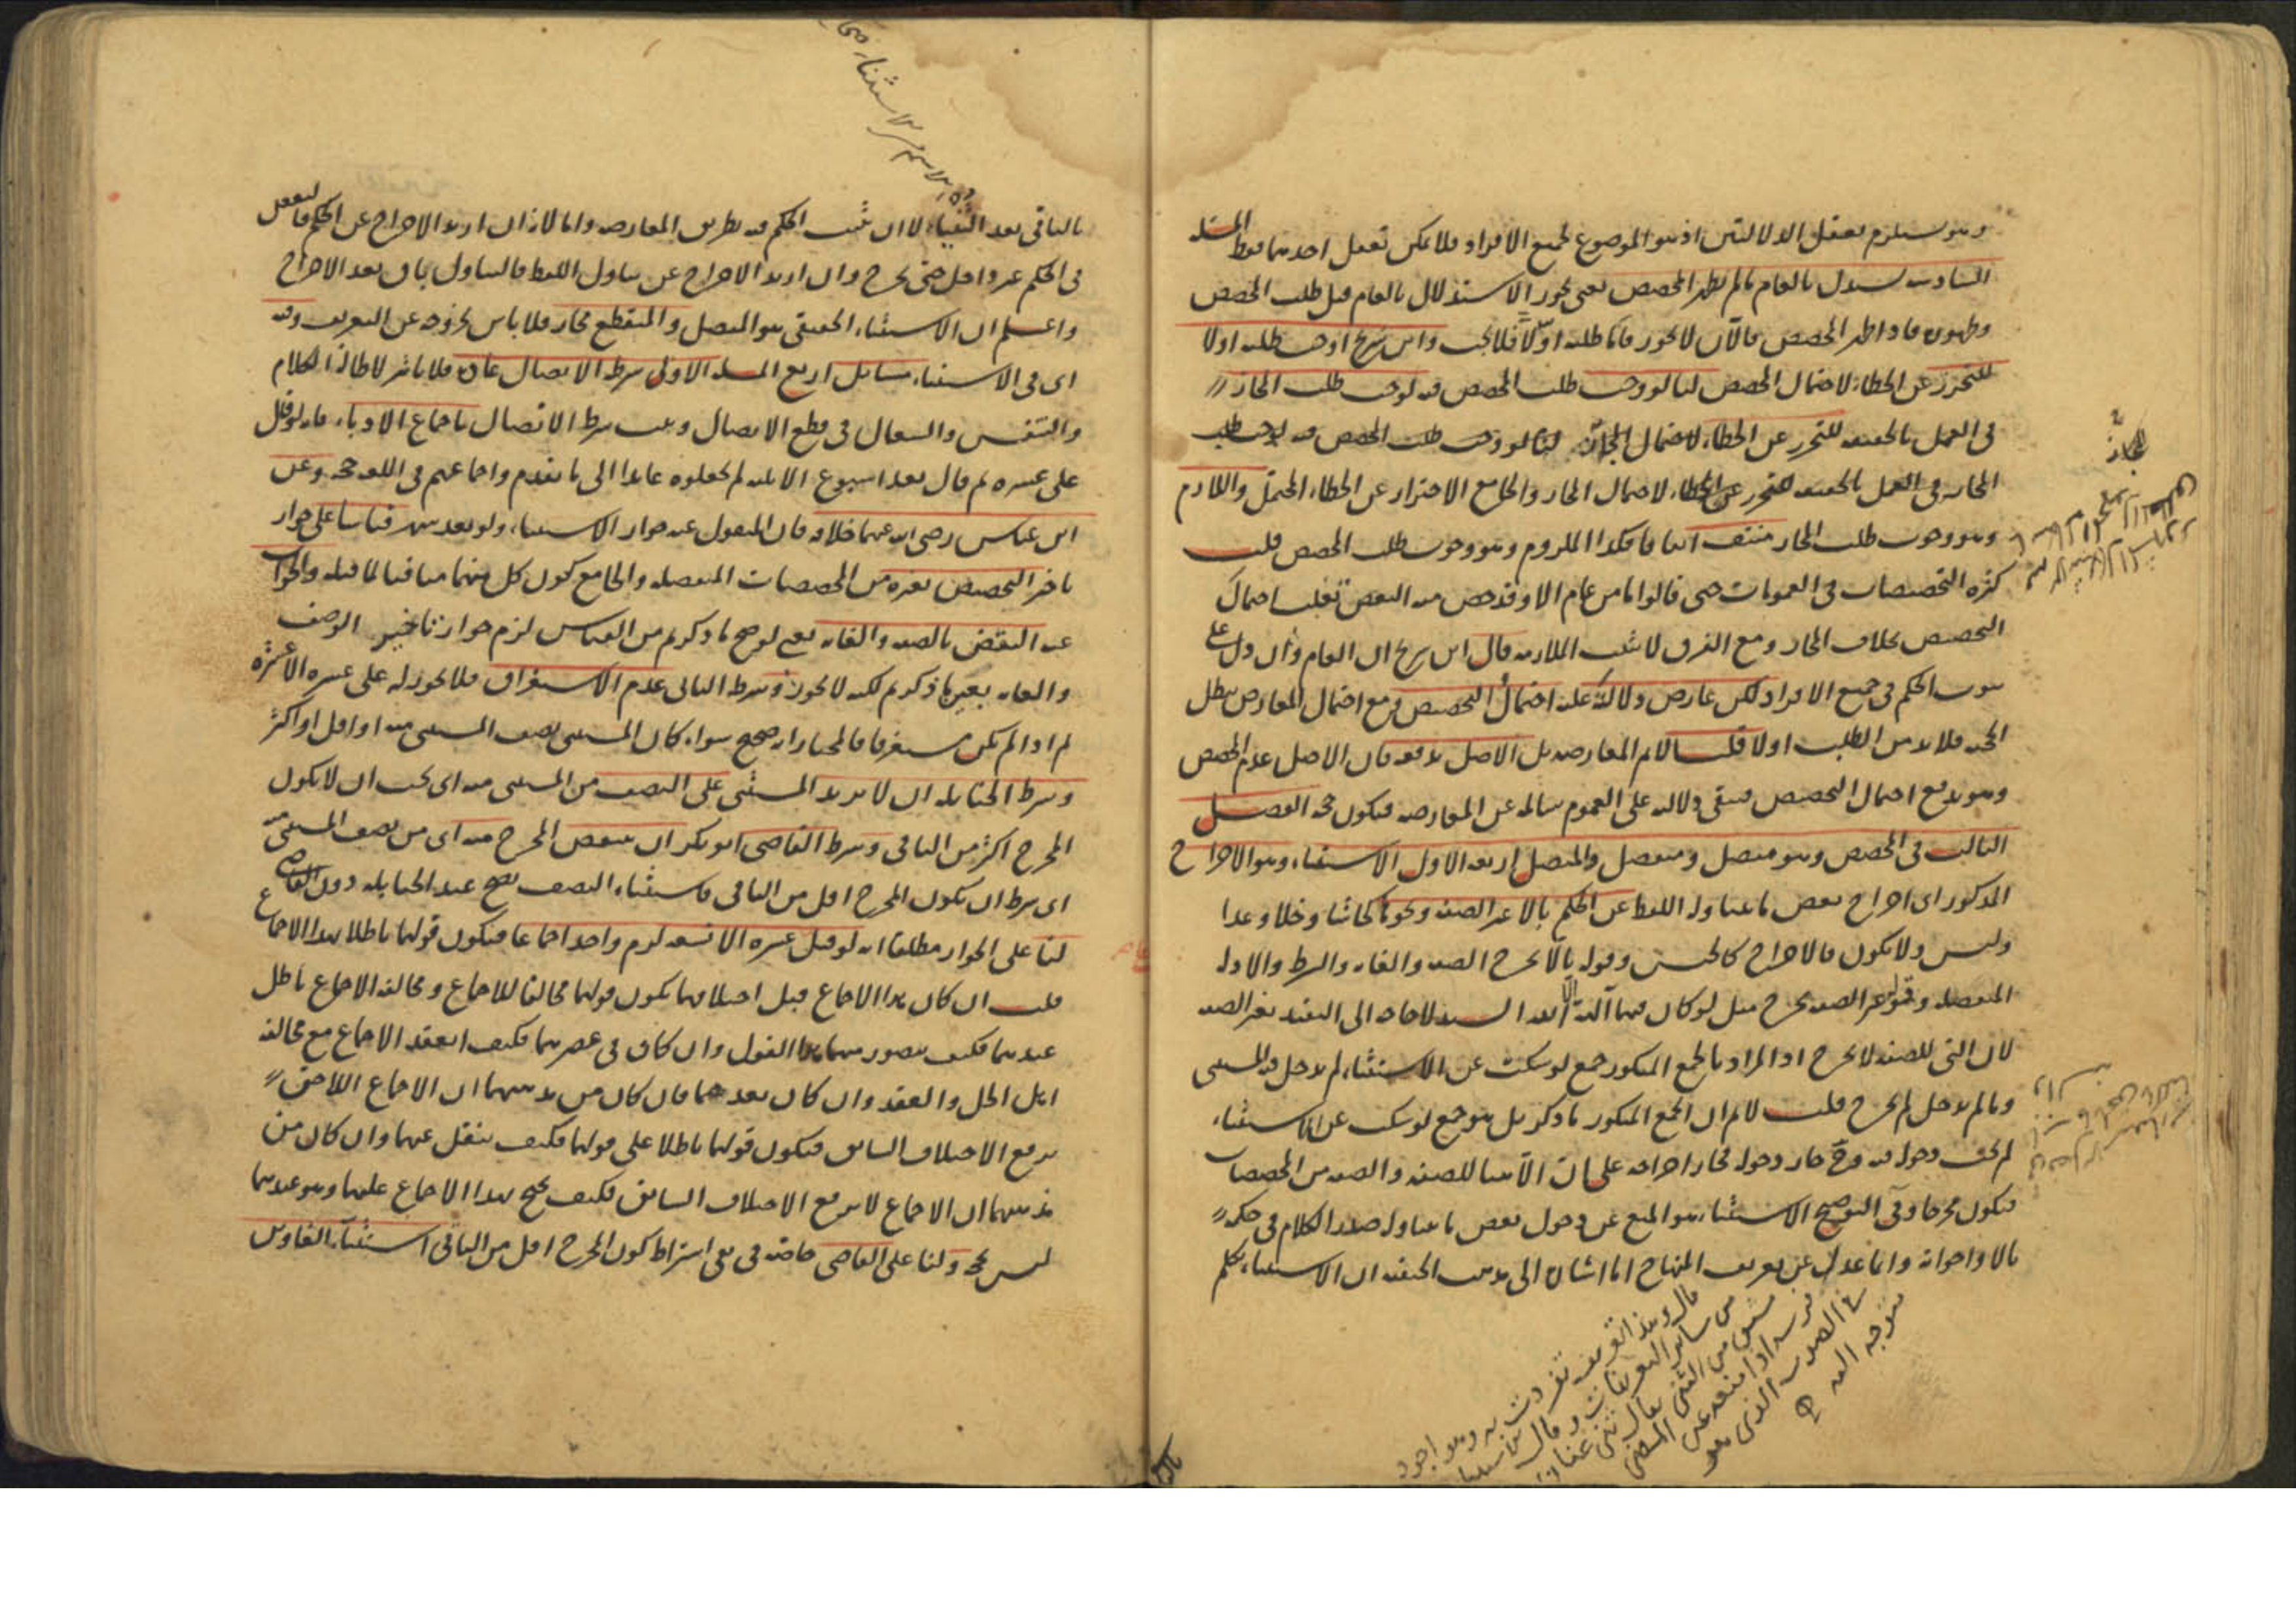 وهو يستلزم تعقل الدلالتين اذ هو الموضوع لجميع الافراد فلا يمكن تعقل احدهما فقط المسئلة
السادسة يستدل بالعام ما لم يظهر المخصص يعني يجوز الاستدلال بالعام قبل طلب المخصص
وظهوره فاذا ظهر المخصص فالآن لا يجوز فاما طلبه اولا فلا يجب وابن سريج اوجب طلبه اولا
للتحرز عن الخطاء لاحتمال المخصص لنا لو وجب طلب المخصص فيه لوجب طلب المجاز
في العمل بالحقيقة للتحرز عن الخطاء لاحتمال المجاز لنا لو وجب طلب المخصص فيه لوجب طلب
المجاز في العمل بالحقيقة للتحرز عن الخطاء لاحتمال المجاز والجامع الاحتراز عن الخطاء المحتمل واللازم
وهو وجوب طلب المجاز منتف اتفاقا فكذا الملزوم وهو وجوب طلب المخصص قلت
كثرة التخصيصات في العمومات حتى قالوا ما من عام الا وقد خص منه البعض تغلب احتمال
التخصيص بخلاف المجاز ومع الفرق لا تثبت الملازمة قال ابن سريج ان العام وان دل على
ثبوت الحكم في جميع الافراد لكن عارض دلالته عليه احتمال التخصيص ومع احتمال المعارض يبطل
الحجة فلا بد من الطلب اولا قلنا لا نم المعارضة بل الاصل يدفعه فان الاصل عدم المخصص
وهو يدفع احتمال التخصيص فتبقى دلالته على العموم سالمة عن المعارضة فيكون حجة الفصل
الثالث في المخصص وهو متصل ومنفصل والمتصل اربعة الاول الاستثناء وهو الاخراج
المذكور اى اخراج بعض ما يتناوله اللفظ عن الحكم بالا غير الصفة ونحوها كحاشا وخلا وعدا
وليس ولا يكون فالاخراج كالجنس وقوله بالا يخرج الصفة والغاية والشرط والادلة
المنفصلة وقوله غير الصفة يخرج مثل لو كان فيهما آلهة الا الله لفسدتا لا حاجة الى التقييد بغير الصفة
لان التي للصفة لا يخرج اذ المراد بالجمع المنكور جمع لو سكت عن الاستثناء لم يدخل فيه المستثنى
وما لم يدخل لم يخرج قلت لا نم ان الجمع المنكور ما ذكر بل هو جمع لو سكت عن الاستثناء
لم يجب دخوله فيه وح جاز دخوله فجاز اخراجه على ان الاستثنا للصفة والصفة من المخصصات
فيكون مخرجا وفي التوضيح الاستثناء هو المنع عن دخول بعض ما يتناوله صدر الكلام في حكمه
بالا واخواته وانما عدل عن تعريف المنهاج اما اشارة الى مذهب الحنفية ان الاستثناء تكلم
بالباقي بعد الثنيا لا ان يثبت الحكم فيه بطريق المعارضة واما لانه ان اريد الاخراج عن الحكم فالبعض
في الحكم غير داخل حتى يخرج وان اريد الاخراج عن تناول اللفظ فالتناول باق بعد الاخراج
واعلم ان الاستثناء الحقيقي هو المتصل والمنقطع مجاز فلا باس بخروجه عن التعريف وفيه
اى في الاستثناء مسائل اربع المسئلة الاولى شرط الاتصال عادة فلا تاثير لاطالة الكلام
والتنفس والسعال في قطع الاتصال ويثبت شرط الاتصال باجماع الادباء فانه لو قال
على عشرة ثم قال بعد اسبوع الا ثلثة لم يجعلوه عايدا الى ما تقدم واجماعهم في اللغة حجة وعن
ابن عباس رضى الله عنهما خلافه فان المنقول عنه جواز الاستثناء ولو بعد شهر قياسا على جواز
تاخير التخصيص بغيره من المخصصات المنفصلة والجامع كون كل منهما منافيا لما قبله والجواب
عنه النقض بالصفة والغاية يعني لو صح ما ذكرتم من القياس لزم جواز تاخير الوصف
والغاية بعين ما ذكرتم لكنه لا يجوز وشرط الثاني عدم الاستغراق فلا يجوز له على عشرة الا عشرة
ثم اذا لم يكن مستغرقا فالمختار انه صحيح سواء كان المستثنى نصف المستثنى منه او اقل او اكثر
وشرط الحنابلة ان لا يزيد المستثنى على النصف من المستثنى منه اى يجب ان لا يكون
المخرج اكثر من الباقي وشرط القاضي ابو بكر ان ينقص المخرج منه اى من نصف المستثنى منه
اى شرط ان يكون المخرج اقل من الباقي فاستثناء النصف يصح عند الحنابلة دون القاضي
لنا على الجواز مطلقا انه لو قيل عشرة الا تسعة لزم واحد اجماعا فيكون قولهما باطلا بهذا الاجماع
قلت ان كان هذا الاجماع قبل اختلافهما يكون قولهما مخالفا للاجماع ومخالفة الاجماع باطل
عندهما فكيف يتصور منهما هذا القول وان كان في عصرهما فكيف انعقد الاجماع مع مخالفة
اهل الحل والعقد وان كان بعدهما فان كان من مذهبهما ان الاجماع اللاحق
يرفع الاختلاف السابق فيكون قولهما باطلا على قولهما فكيف ينقل عنهما وان كان من
مذهبهما ان الاجماع لا يرفع الاختلاف السابق فكيف يحتج بهذا الاجماع عليهما وهو عندهما
ليس بحجة ولنا على القاضي خاصة في نفي اشتراط كون المخرج اقل من الباقي استثناء الغاوين